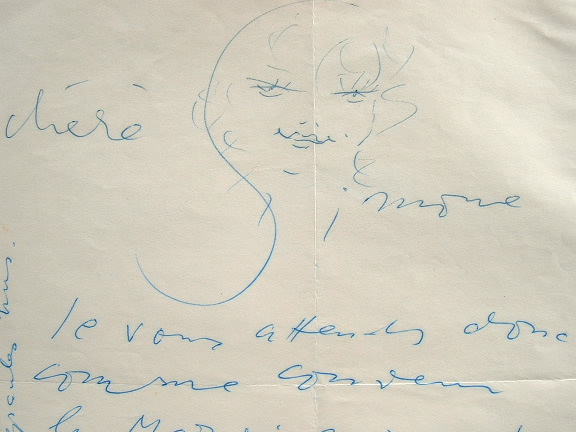 chère
Simone
Je vous attends donc
comme convenu